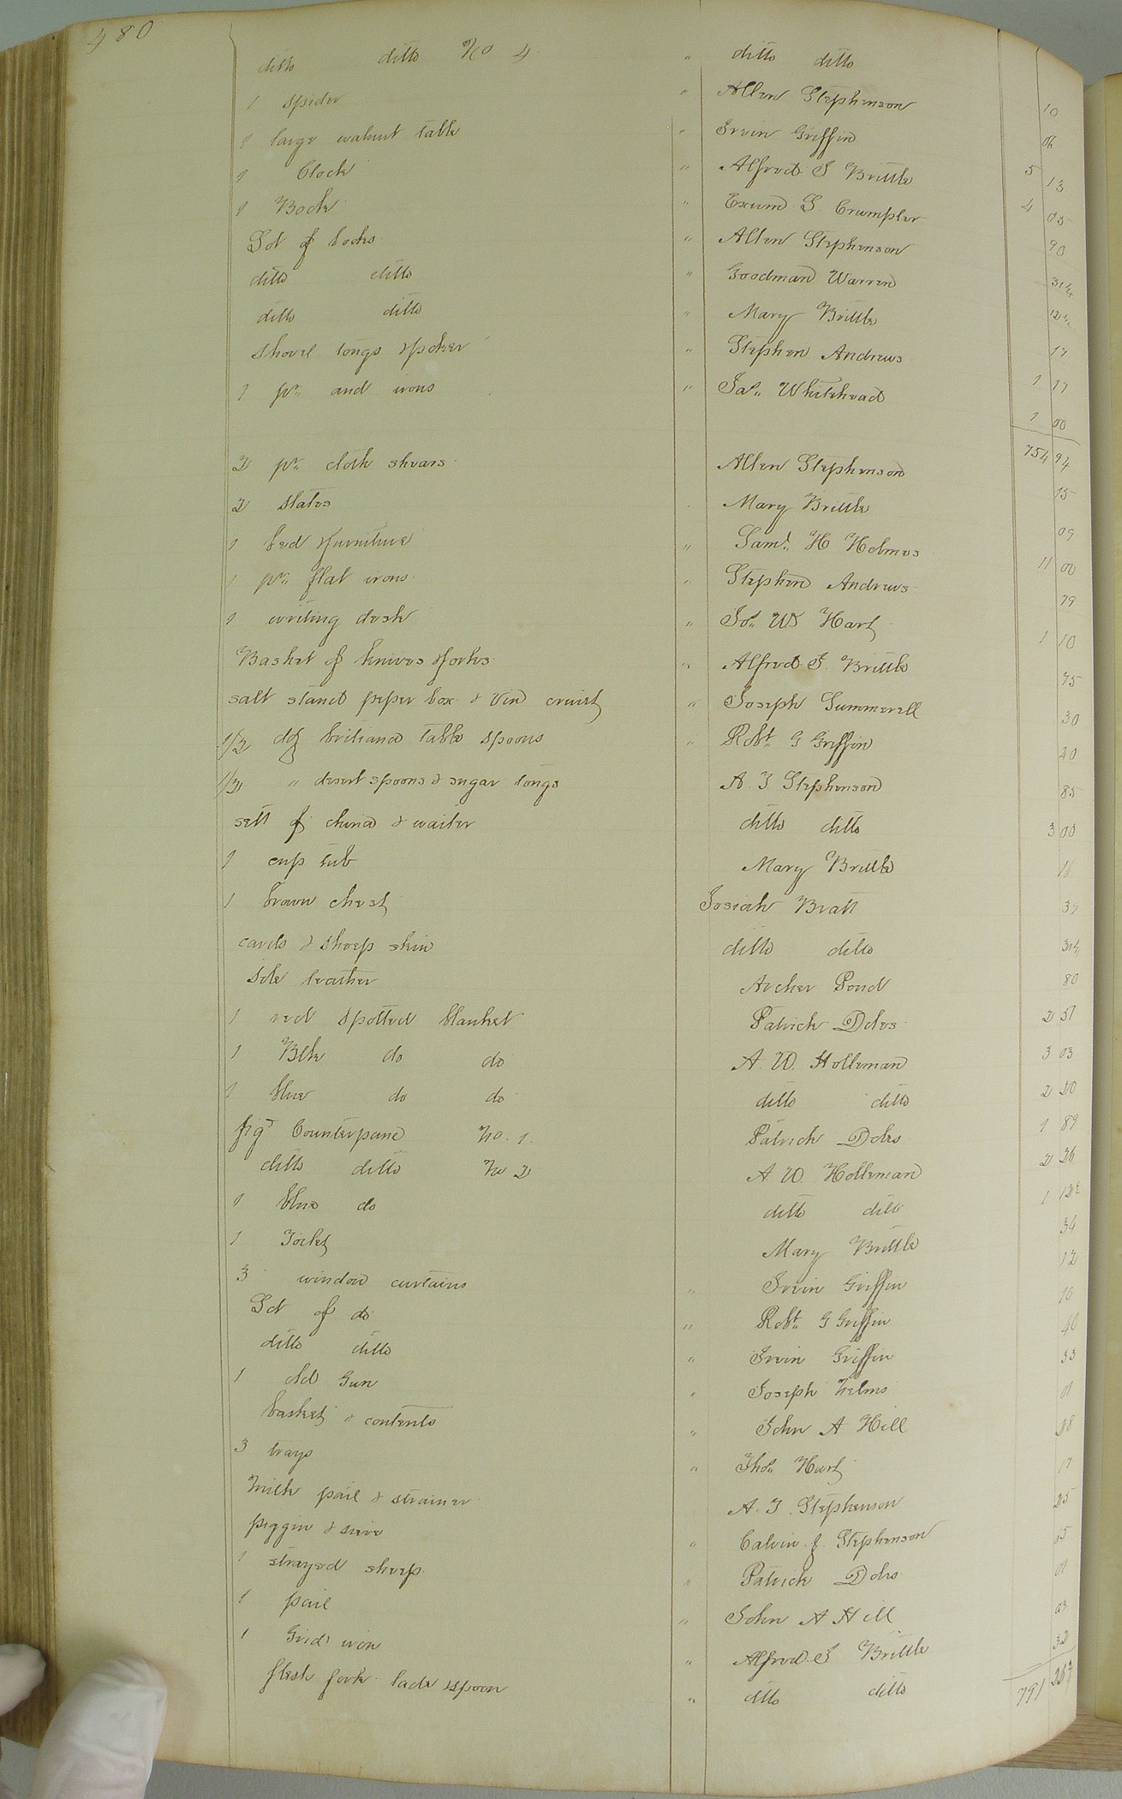 480
ditto ditto No 4 " ditto ditto 10
1 spider " Allen Stephenson 06
1 large walnut table " Irvin Griffin 5 13
1 Clock " Alfred S Brittle 4 05
1 Book " Exum S Crumpler 90
Set of books " Allen Stephenson 31¼
ditto ditto " Goodman Warren 12½
ditto ditto " Mary Brittle 17
shovel tongs & poker " Stephen Andrews 1 17
1 pr. and irons " Jas. Whitehead 1 00
754 94
2 pr. cloth shears Allen Stephenson 15
2 slates Mary Brittle 09
1 bed & furniture " Saml. H Holmes 11 00
1 pr. flat irons " Stephen Andrews 79
1 writing desk " Jos. W Hart 1 10
Basket of knives & forks " Alfred S. Brittle 75
salt stand peper box & Vin cruist " Joseph Summerell 30
1/2 doz britiana table spoons " Robt. G Griffin 20
1/2 " desert spoons & sugar tongs A. J Stephenson 85
sett of china & waiter ditto ditto 3 00
1 cup tub Mary Brittle 11
1 brown chest Josiah Bratt 37
cards & sheep skin ditto ditto 31¼
Sole leather Archer Pond 80
1 red spotted blanket Patrick Doles 2 57
1 Blk do do A. W. Holleman 3 03
1 blue do do ditto ditto 2 20
figd Counterpane No. 1. Patrick Doles 1 89
ditto ditto No 2 A W. Holleman 2 26
1 blue do ditto ditto 1 12½
1 Jocket Mary Brittle 34
3 window curtains " Irvin Griffin 12
Set of do " Robt. G Griffin 10
ditto ditto " Irvin Griffin 40
1 old Gun " Joseph Nelms 33
basket & contents " John A Hill 01
3 trays " Thos. Hart 28
milk pail & strainer A. J. Stephenson 17
piggin & sieve " Calvin J. Stephenson 25
1 strayed sheep " Patrick Doles 05
1 pail " John A Hill 01
1 Grid iron " Alfred S Brittle 03
flesh fork lade spoon " ditto ditto 32
791 26¾